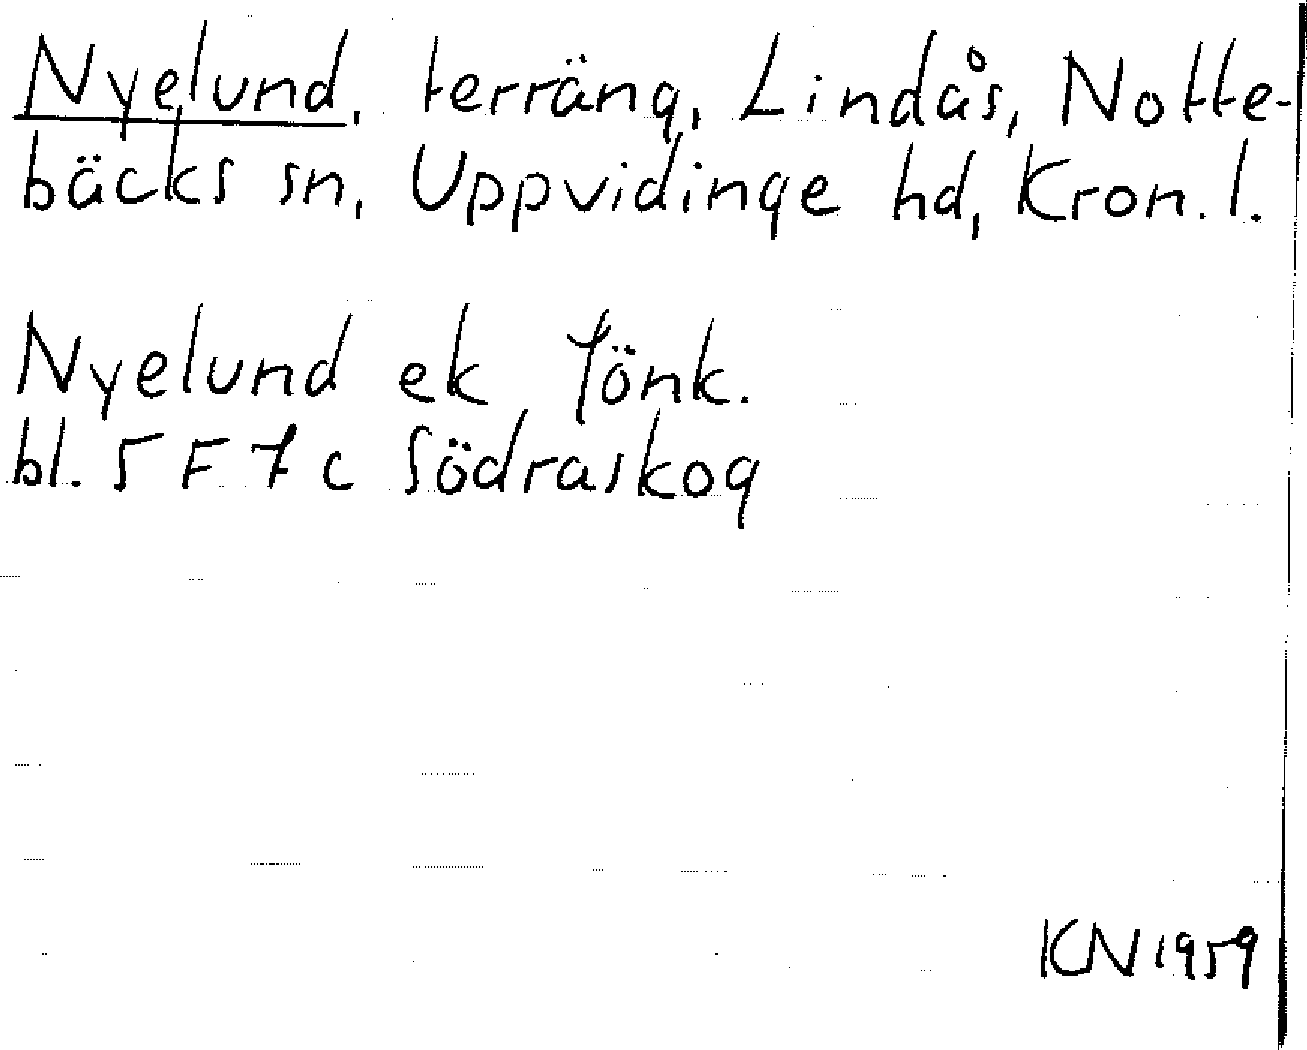 Nyelund, terräng, Lindås, Notte-
bäcks sn, Uppvidinge hd, Kron. l.
Nyelund ek Jönk.
bl. 5 F 7 c Södraskog
KN 1959